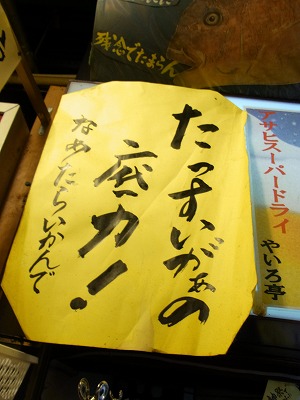 残念でたまらん
たっすいがぁの
底力!
なめたらいかんで
アサヒスーパードライ
やいろ亭